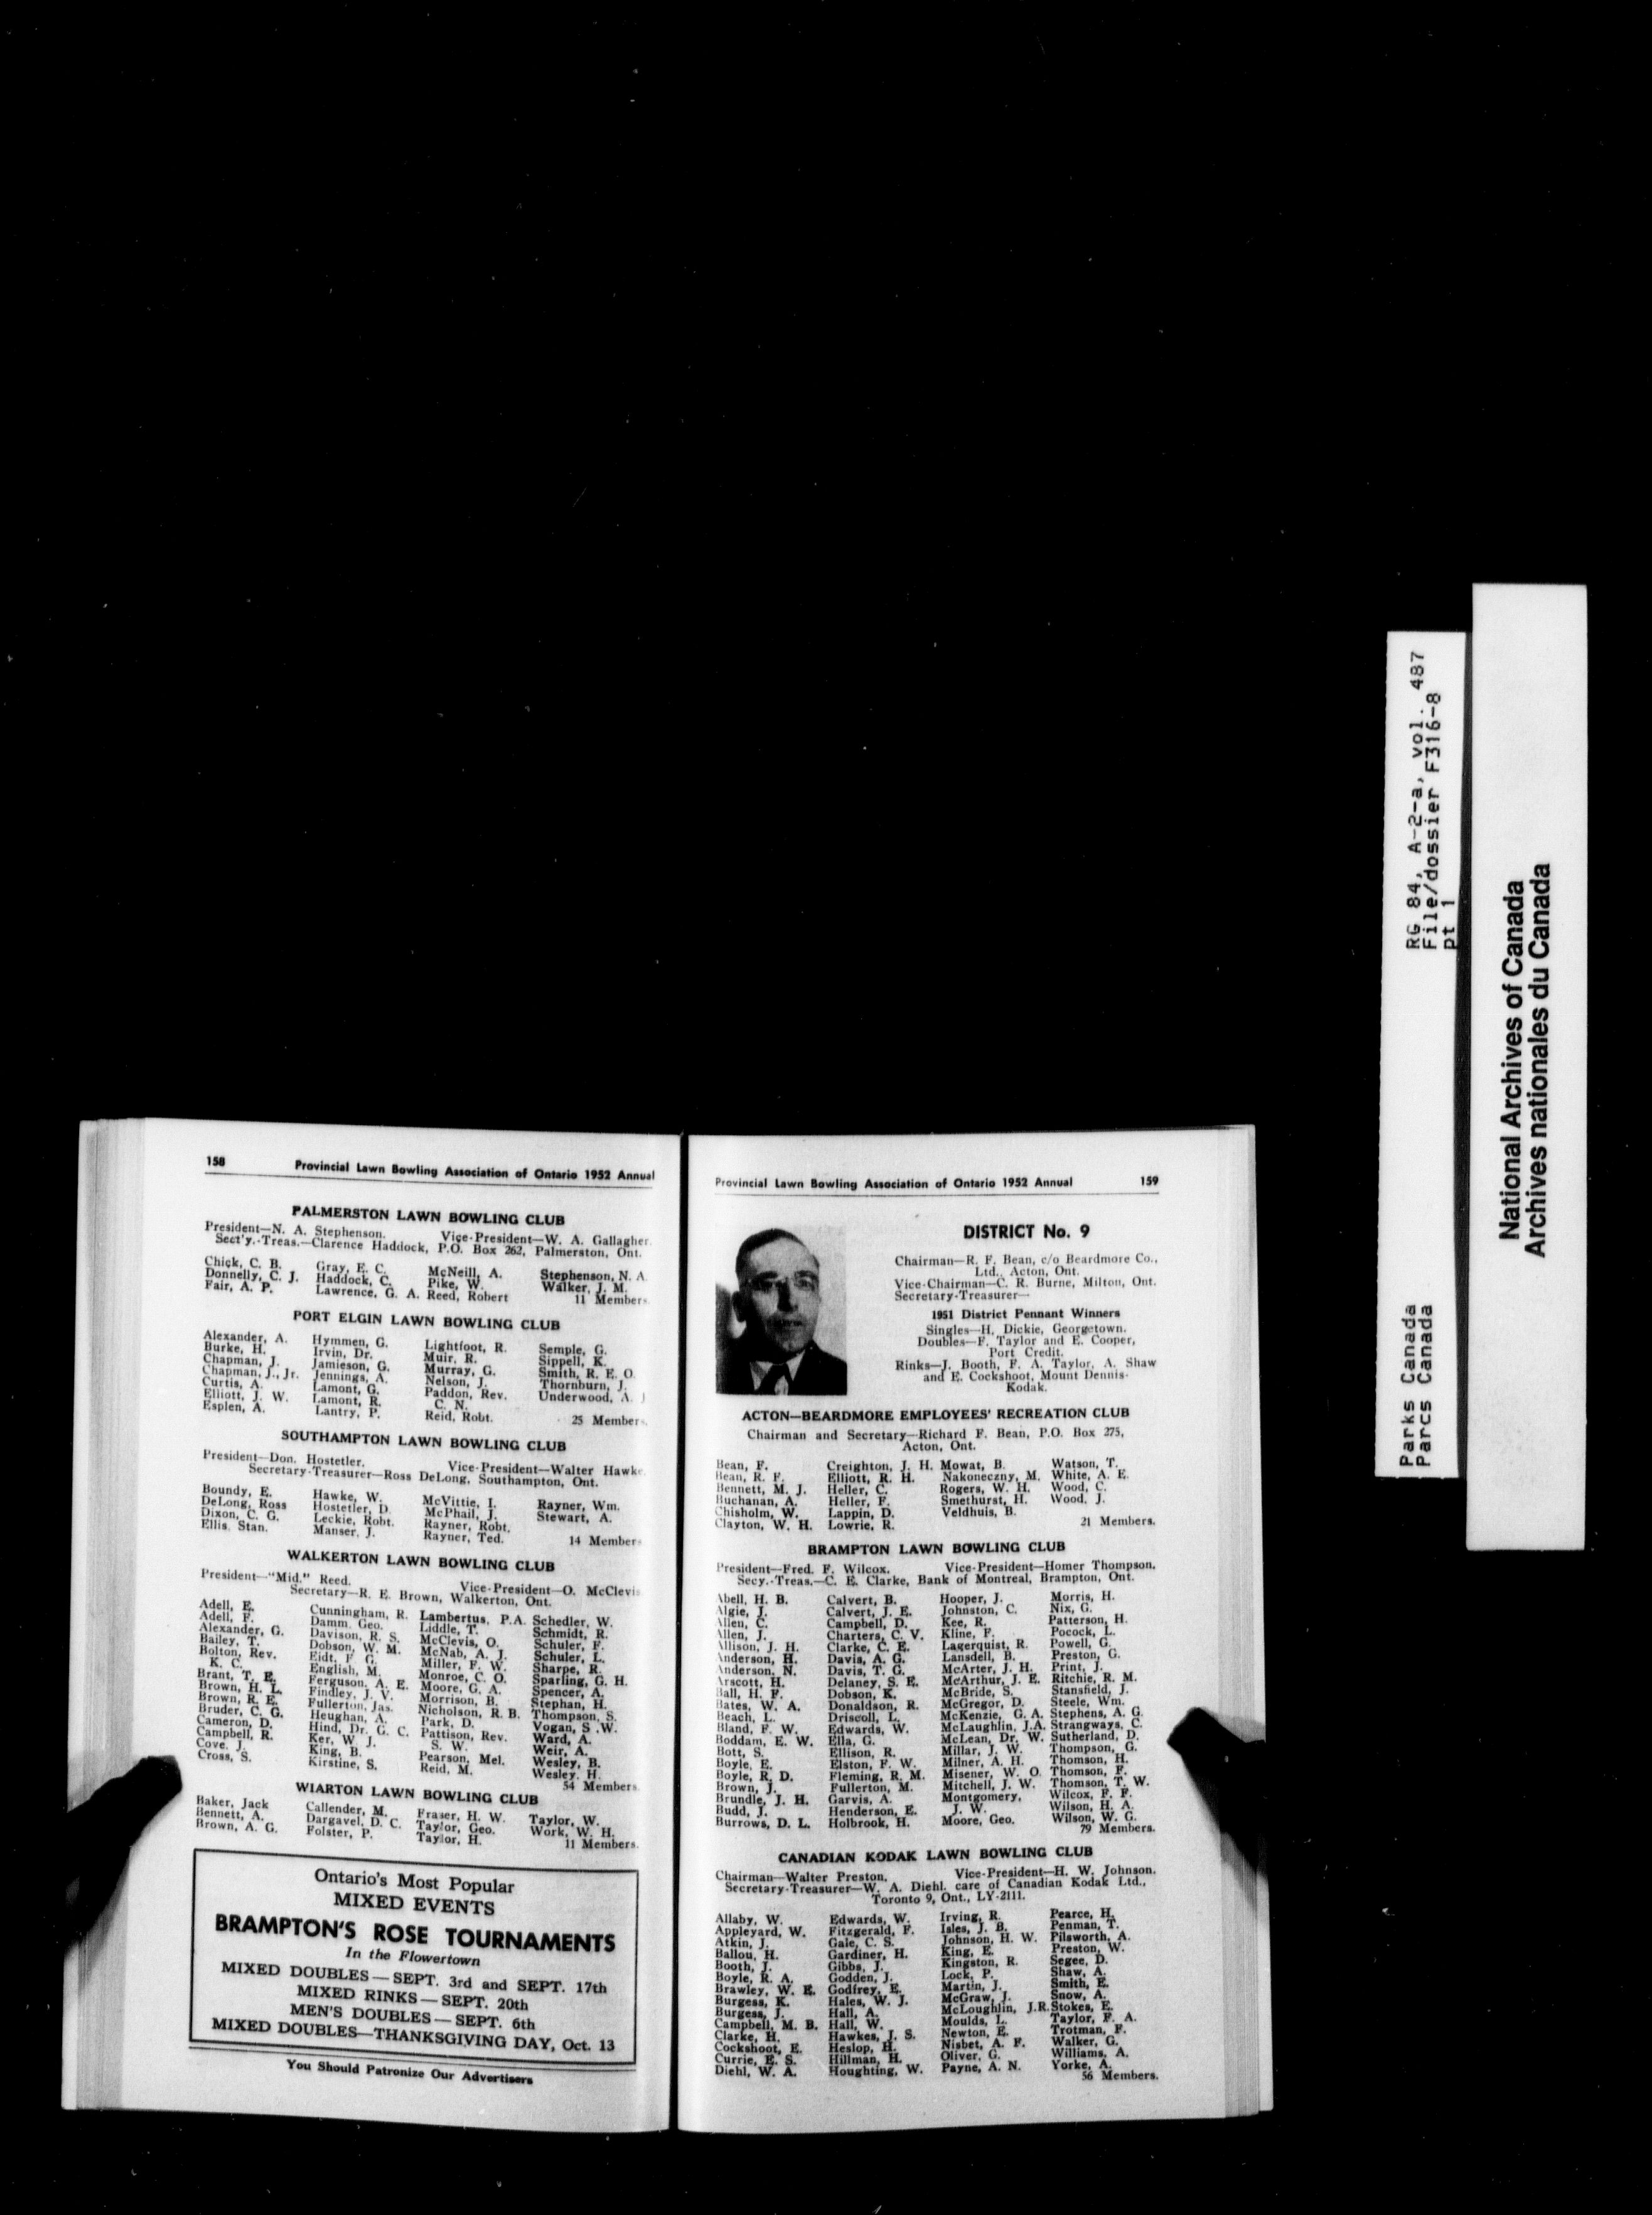 158 Provincial Lawn Bowling Association of Ontario 1952 Annual
PALMERSTON LAWN BOWLING CLUB
President—N. A. Stephenson. Vice-President—W. A. Gallagher.
Sect'y.-Treas.—Clarence Haddock, P.O. Box 262, Palmerston, Ont.
Chick, C. B. Gray, E. C. McNeill, A. Stephenson, N. A.
Donnelly, C. J. Haddock, C. Pike, W. Walker, J. M.
Fair, A. P. Lawrence, G. A. Reed, Robert 11 Members
PORT ELGIN LAWN BOWLING CLUB
Alexander, A. Hymmen, G. Lightfoot, R. Semple, G.
Burke, H. Irvin, Dr. Muir, R. Sippell, K.
Chapman, J. Jamieson, G. Murray, G. Smith, R. E. O.
Chapman, J., Jr. Jennings, A. Nelson, J. Thornburn, J.
Curtis, A. Lamont, G. Paddon, Rev. Underwood, A. J
Elliott, J. W. Lamont, R. C. N.
Esplen, A. Lantry, P. Reid, Robt. 25 Members.
SOUTHAMPTON LAWN BOWLING CLUB
President—Don. Hostetler. Vice-President—Walter Hawke
Secretary-Treasurer—Ross DeLong, Southampton, Ont.
Boundy, E. Hawke, W. McVittie, I. Rayner, Wm.
DeLong, Ross Hostetler, D. McPhail, J. Stewart, A.
Dixon, C. G. Leckie, Robt. Rayner, Robt.
Ellis, Stan. Manser, J. Rayner, Ted. 14 Members
WALKERTON LAWN BOWLING CLUB
President—"Mid." Reed. Vice-President—O. McClevis
Secretary—R. E. Brown, Walkerton, Ont.
Adell, E. Cunningham, R. Lambertus, P.A. Schedler, W.
Adell, F. Damm, Geo. Liddle, T. Schmidt, R.
Alexander, G. Davison, R. S. McClevis, O. Schuler, F.
Bailey, T. Dobson, W. M. McNab, A. J. Schuler, L.
Bolton, Rev. Eidt, F G. Miller, F. W. Sharpe, R.
K. C. English, M. Monroe, C. O. Sparling, G. H.
Brant, T. E. Ferguson, A. E. Moore, G. A. Spencer, A.
Brown, H. L. Findley, J. V. Morrison, B. Stephan, H.
Brown, R. E. Fullerton, Jas. Nicholson, R. B. Thompson, S.
Bruder, C. G. Heughan, A. Park, D. Vogan, S .W.
Cameron, D. Hind, Dr. G. C. Pattison, Rev. Ward, A.
Campbell, R. Ker, W J. S. W. Weir, A.
Cove, J. King, B. Pearson, Mel. Wesley, B.
Cross, S. Kirstine, S. Reid, M. Wesley, H.
54 Members
WIARTON LAWN BOWLING CLUB
Baker, Jack Callender, M. Fraser, H. W. Taylor, W.
Bennett, A. Dargavel, D. C. Taylor, Geo. Work, W. H.
Brown, A. G. Folster, P. Taylor, H. 11 Members.
Ontario's Most Popular
MIXED EVENTS
BRAMPTON'S ROSE TOURNAMENTS
In the Flowertown
MIXED DOUBLES — SEPT. 3rd and SEPT. 17th
MIXED RINKS — SEPT. 20th
MEN'S DOUBLES — SEPT. 6th
MIXED DOUBLES—THANKSGIVING DAY, Oct. 13
You Should Patronize Our Advertisers
Provincial Lawn Bowling Association of Ontario 1952 Annual 159
DISTRICT No. 9
Chairman—R. F. Bean, c/o Beardmore Co.,
Ltd., Acton, Ont.
Vice-Chairman—C. R. Burne, Milton, Ont.
Secretary-Treasurer—
1951 District Pennant Winners
Singles—H. Dickie, Georgetown.
Doubles—F. Taylor and E. Cooper,
Port Credit.
Rinks—J. Booth, F. A. Taylor, A. Shaw
and E. Cockshoot, Mount Dennis-
Kodak.
ACTON—BEARDMORE EMPLOYEES' RECREATION CLUB
Chairman and Secretary—Richard F. Bean, P.O. Box 275,
Acton, Ont.
Bean, F. Creighton, J. H. Mowat, B. Watson, T.
Bean, R. F. Elliott, R. H. Nakoneczny, M. White, A. E.
Bennett, M. J. Heller, C. Rogers, W. H. Wood, C.
Buchanan, A. Heller, F. Smethurst, H. Wood, J.
Chisholm, W. Lappin, D. Veldhuis, B.
Clayton, W. H. Lowrie, R. 21 Members.
BRAMPTON LAWN BOWLING CLUB
President—Fred. F. Wilcox. Vice-President—Homer Thompson.
Secy.-Treas.—C. E. Clarke, Bank of Montreal, Brampton, Ont.
Abell, H. B. Calvert, B. Hooper, J. Morris, H.
Algie, J. Calvert, J. E. Johnston, C. Nix, G.
Allen, C. Campbell, D. Kee, R. Patterson, H.
Allen, J. Charters, C. V. Kline, F. Pocock, L.
Allison, J. H. Clarke, C. E. Lagerquist, R. Powell, G.
Anderson, H. Davis, A. G. Lansdell, B. Preston, G.
Anderson, N. Davis, T. G. McArter, J. H. Print, J.
Arscott, H. Delaney, S. E. McArthur, J. E. Ritchie, R. M.
Ball, H. F. Dobson, K. McBride, S. Stansfield, J.
Bates, W. A. Donaldson, R. McGregor, D. Steele, Wm.
Beach, L. Driscoll, L. McKenzie, G. A. Stephens, A. G.
Bland, F. W. Edwards, W. McLaughlin, J.A. Strangways, C.
Boddam, E. W. Ella, G. McLean, Dr. W. Sutherland, D.
Bott, S. Ellison, R. Millar, J. W. Thompson, G.
Boyle, E. Elston, F. W. Milner, A. H. Thomson, H.
Boyle, R. D. Fleming, R. M. Misener, W. O. Thomson, F.
Brown, J. Fullerton, M. Mitchell, J. W. Thomson, T. W.
Brundle, J. H. Garvis, A. Montgomery, Wilcox, F. F.
Budd, J. Henderson, E. J. W. Wilson, H. A.
Burrows, D. L. Holbrook, H. Moore, Geo. Wilson, W. G.
79 Members.
CANADIAN KODAK LAWN BOWLING CLUB
Chairman—Walter Preston, Vice-President—H. W. Johnson.
Secretary-Treasurer—W. A. Diehl, care of Canadian Kodak Ltd.,
Toronto 9, Ont., LY-2111.
Allaby, W. Edwards, W. Irving, R. Pearce, H.
Appleyard, W. Fitzgerald, F. Isles, J. B. Penman, T.
Atkin, J. Gale, C. S. Johnson, H. W. Pilsworth, A.
Ballou, H. Gardiner, H. King, E. Preston, W.
Booth, J. Gibbs, J. Kingston, R. Segee, D.
Boyle, R. A. Godden, J. Lock, P. Shaw, A.
Brawley, W. E. Godfrey, E. Martin, J. Smith, E.
Burgess, K. Hales, W. J. McGraw, J. Snow, A.
Burgess, J. Hall, A. McLoughlin, J.R. Stokes, E.
Campbell, M. B. Hall, W. Moulds, L. Taylor, F. A.
Clarke, H. Hawkes, J. S. Newton, E. Trotman, F.
Cockshoot, E. Heslop, H. Nisbet, A. F. Walker, G.
Currie, E. S. Hillman, H. Oliver, G. Williams, A.
Diehl, W. A. Houghting, W. Payne, A. N. Yorke, A.
56 Members.
Parks Canada RG 84, A-2-a, vol. 487
Parcs Canada File/dossier F316-8
pt 1
National Archives of Canada
Archives nationales du Canada